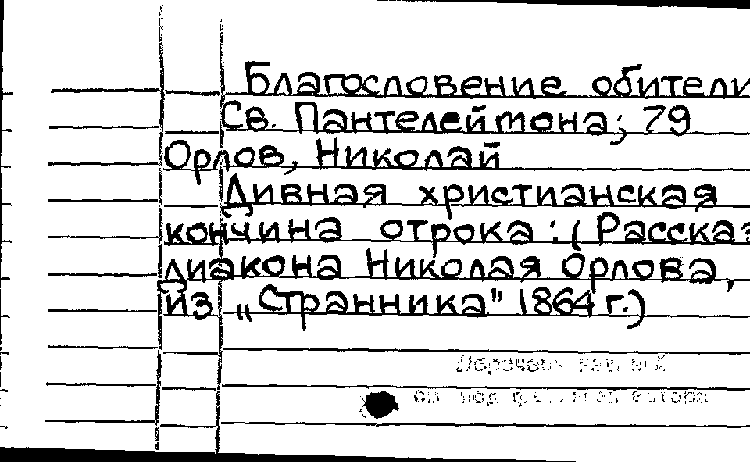 Благословение обители
Св. Пантелеймона; 79
Орлов, Николай
Дивная христианская
кончина отрока: (Рассказ
диакона Николая Орлова,
из „Странника" 1864 г.)